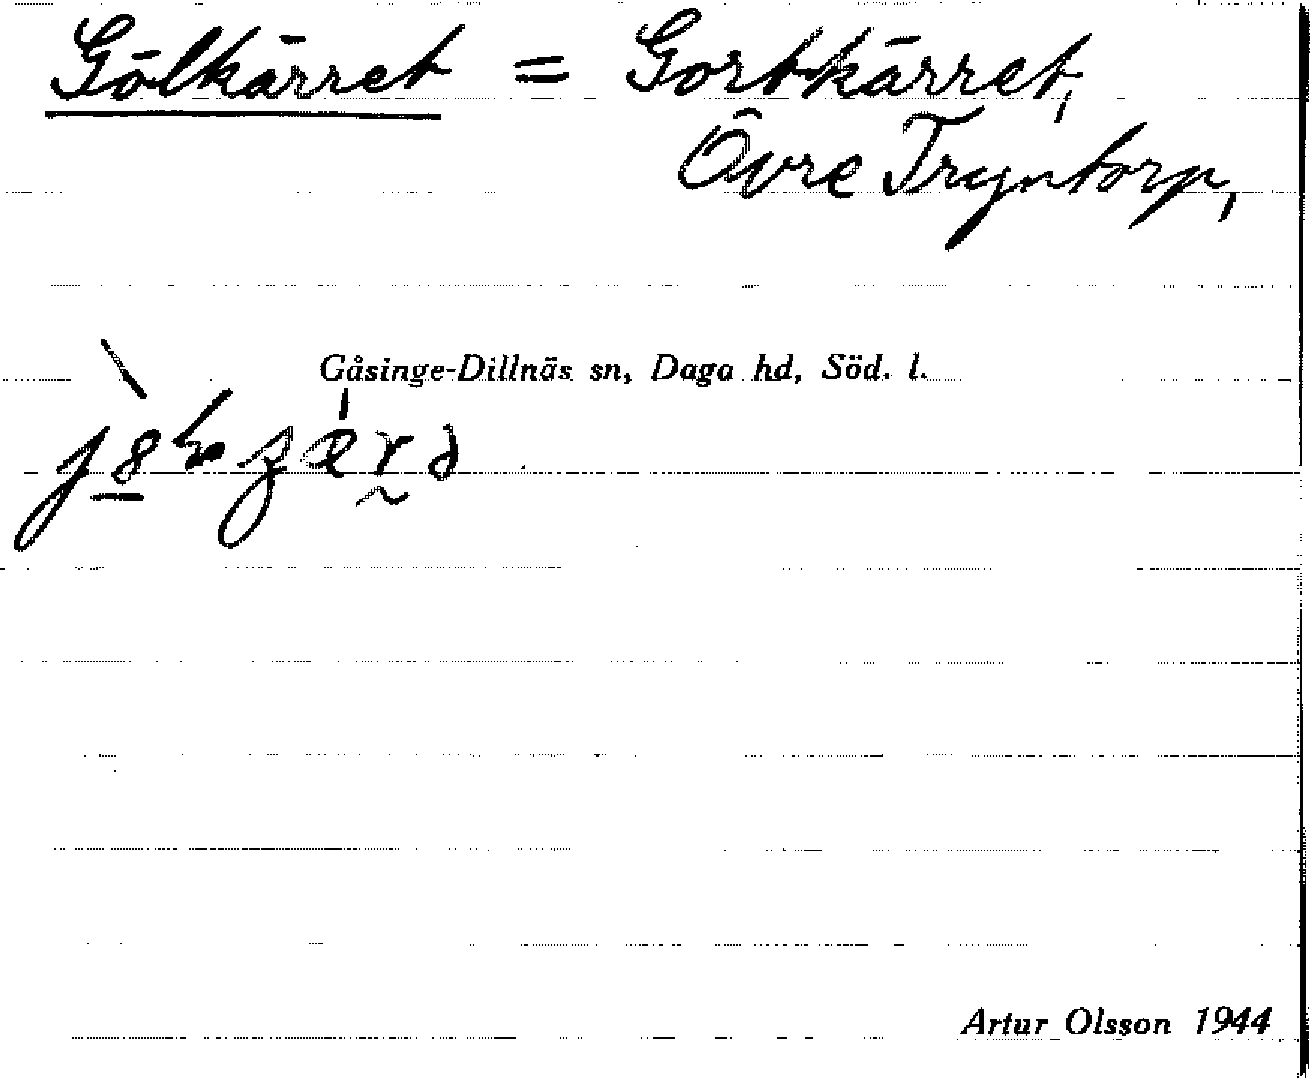 Gölkärret = Gortkärret,
Övre Tryntorp,
Gåsinge-Dillnäs sn, Daga hd, Söd. l.
Artur Olsson 1944